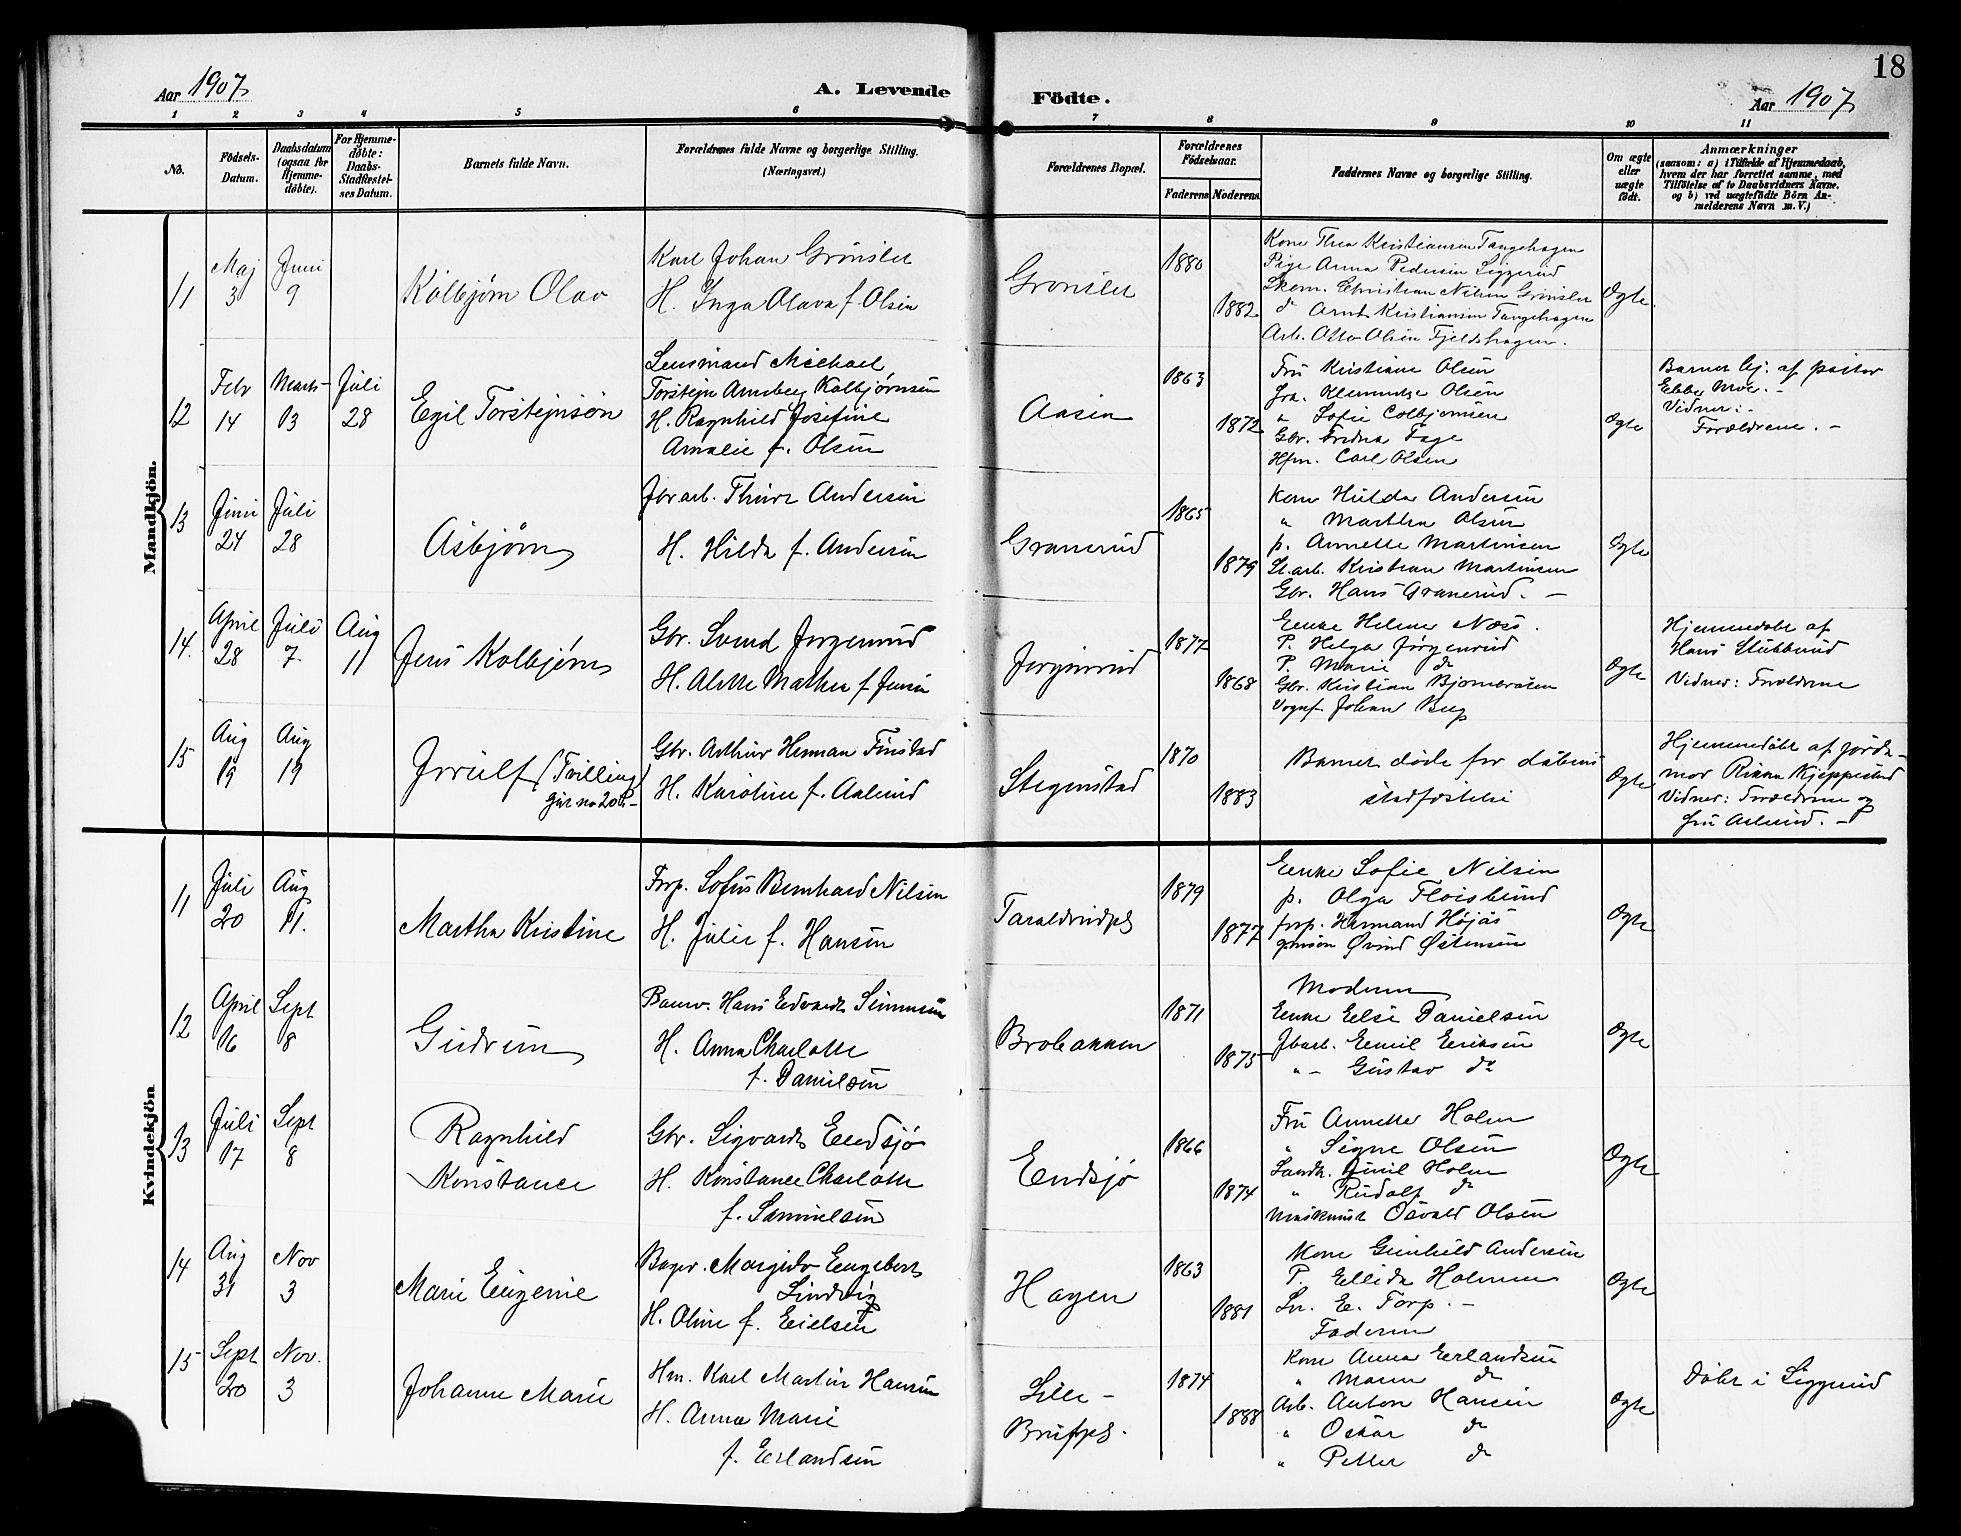 18
Aar 1907
A. Levende
Födte.
Aar 1907
1 2 3 4 5 6 7 8 9 10 11
No.
Födsels-Datum.
Daabsdatum (ogsaa for Hjemmedöbte).
For Hjemmedöbte: Daabs-Stadfæstelses Datum.
Barnets fulde Navn.
Forældrenes fulde Navne og borgerlige Stilling. (Næringsvei.)
Forældrenes Bopæl.
Forældrenes Födselsaar.
Faderens Moderens
Faddernes Navne og borgerlige Stilling.
Om ægte eller uægte födt.
Anmærkninger
(saasom: a) i Tilfælde af Hjemmedaab,
hvem der har forrettet samme, med
Tilföielse af to Daabsvidners Navne.
og b) ved uægtefödte Börn An-
melderens Navn m. V.)
Mandkjön.
11
Maj 3
Juni 9
Kolbjørn Olav
Karl Johan Grönslet
H. Inga Olava f. Olsen
Gronslet
1880
1882
Kone Thea Kristiansen Tangehagen
Pige Anna Pedersen Siggerud
Skom. Christian Nilsen Grönslet
do Arnt Kristiansen Tangehagen
Arb. Otto Olsen Fjeldshagen.
Ogte.
12
Febr 14
Marts 13
Juli 28
Egil Torstejnsøn
Lensmand Michael
Torstejn Arneberg Kolbjørnsen
H. Ragnhild Josefine
Amalie f. Olsen
Aasen
1863
1872
Fru Kristiane Olsen
Frk. Klemmetse Olsen
" Sofie Colbjørnsen
Gbr. Fage
Hfm. Carl Olsen
Ogte
Barnet hj. af pastor
Ebbe Moe. -
Vidner: -
Forældrene. -
13
Juni 24
Juli 28
Asbjørn
Jbrarb. Thure Andersen
H. Hilda f. Andersen
Granerud
1865
1879
Kone Hulda Andersen
" Martha Olsen
p. Annette Martinsen
St.arb. Kristian Martinsen
Gbr. Hans Granerud. -
Ogte
14.
April 28
Juli 7
Aug 11
Jens Kolbjørn
Gbr. Svend Jørgenrud
H. Alette Mathea f. Jensen
Jorgenrud
1877
1868
Enke Helene Næss.
P. Helga Jørgenrud
P. Marie do
Gbr. Kristian Bjørnbraten
Vognf. Johan Berg
Ogte
Hjemmedøbt af
Hans Stubberud
Vidner: Forældrene
15
Aug 19
Aug 19
Jorulf (Tvilling)
Gbr. Arthur Herman Finstad
H. Karoline f. Aalerud
Stegenstad
1870
1883
Barnet døde før dåbens
stadfæstelse
Ogte
Hjemmedøbt af jorde-
mor Rikka Kjeppestad
Vidner: Forældrene og
fru Aalerud. -
Kvindekjön
11
Juli 20
Aug 11.
Martha Kristine
Forp. Sofus Bernhard Nilsen
H. Julie f. Hansen
Taraldrudpls
1879
1877
Enke Sofie Nilsen
p. Olga Floisbund
forp. Hermand Højås
Øvind Østensen
Ogte
12
April 16
Sept 8
Gudrun
Banev. Hans Edvardt Simensen
H. Anna Charlotte
f. Danielsen
Brobakken
1871
1875
Moderen
Enke Else Danielsen
Jbarb. Emil Eriksen
" - Gustav do
Ogte
13
Juli 17
Sept 8
Ragnhild
Konstance
Gbr. Sigvardt Endsjø
H. Konstance Charlotte
f. Samuelsen
Endsjø
1866
1874
Fru Annette Holm
" Signe Olsen
Landh. Emil Holm
" Rudolf do
Maskinist Osvald Olsen
Ogte
14
Aug 31
Nov 3
Marie Eugenie
Bager. Margido Engebert
Lindvig
H. Oline f. Eielsen
Hagen
1863
1881
Kone Gunhild Andersen
P. Ellida Holmen
Sn. E. Torp. -
Faderen
Ogte
15
Sept 20
Nov. 3
Johanne Marie
Hm. Karl Martin Hansen
H. Anna Marie
f. Erlandsen
Lille -
Brufpls.
1874
1888
Kone Anna Erlandsen
" Maren do
Arb. Anton Hansen
" Oskar do
" Petter do
Ogte
Døbt i Siggerud